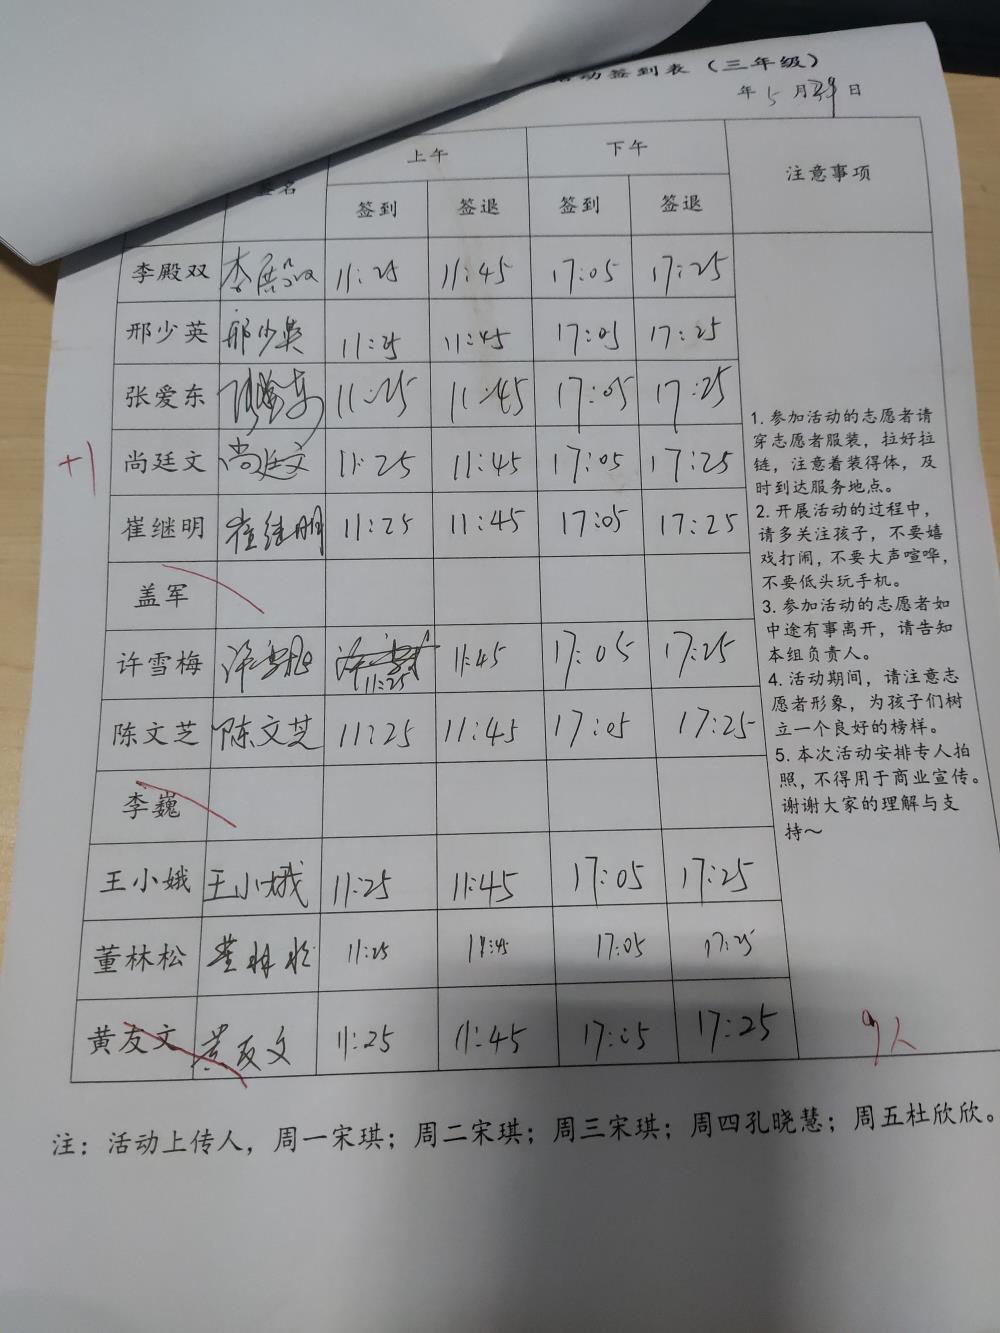 活动签到表（三年级）
年 5 月 日
签名 上午 下午 注意事项
签到 签退 签到 签退
李殿双 李殿双 11:25 11:45 17:05 17:25
邢少英 邢少英 11:25 11:45 17:05 17:25
张爱东 张爱东 11:25 11:45 17:05 17:25
+1 尚廷文 尚廷文 11:25 11:45 17:05 17:25
崔继明 崔继明 11:25 11:45 17:05 17:25
盖军
许雪梅 许雪梅 11:25 11:45 17:05 17:25
陈文芝 陈文芝 11:25 11:45 17:05 17:25
李巍
王小娥 王小娥 11:25 11:45 17:05 17:25
董林松 董林松 11:25 11:45 17:05 17:25
黄友文 黄友文 11:25 11:45 17:05 17:25
1. 参加活动的志愿者请
穿志愿者服装，拉好拉
链，注意着装得体，及
时到达服务地点。
2. 开展活动的过程中，
请多关注孩子，不要嬉
戏打闹，不要大声喧哗，
不要低头玩手机。
3. 参加活动的志愿者如
中途有事离开，请告知
本组负责人。
4. 活动期间，请注意志
愿者形象，为孩子们树
立一个良好的榜样。
5. 本次活动安排专人拍
照，不得用于商业宣传。
谢谢大家的理解与支
持～
9人
注：活动上传人，周一宋琪；周二宋琪；周三宋琪；周四孔晓慧；周五杜欣欣。